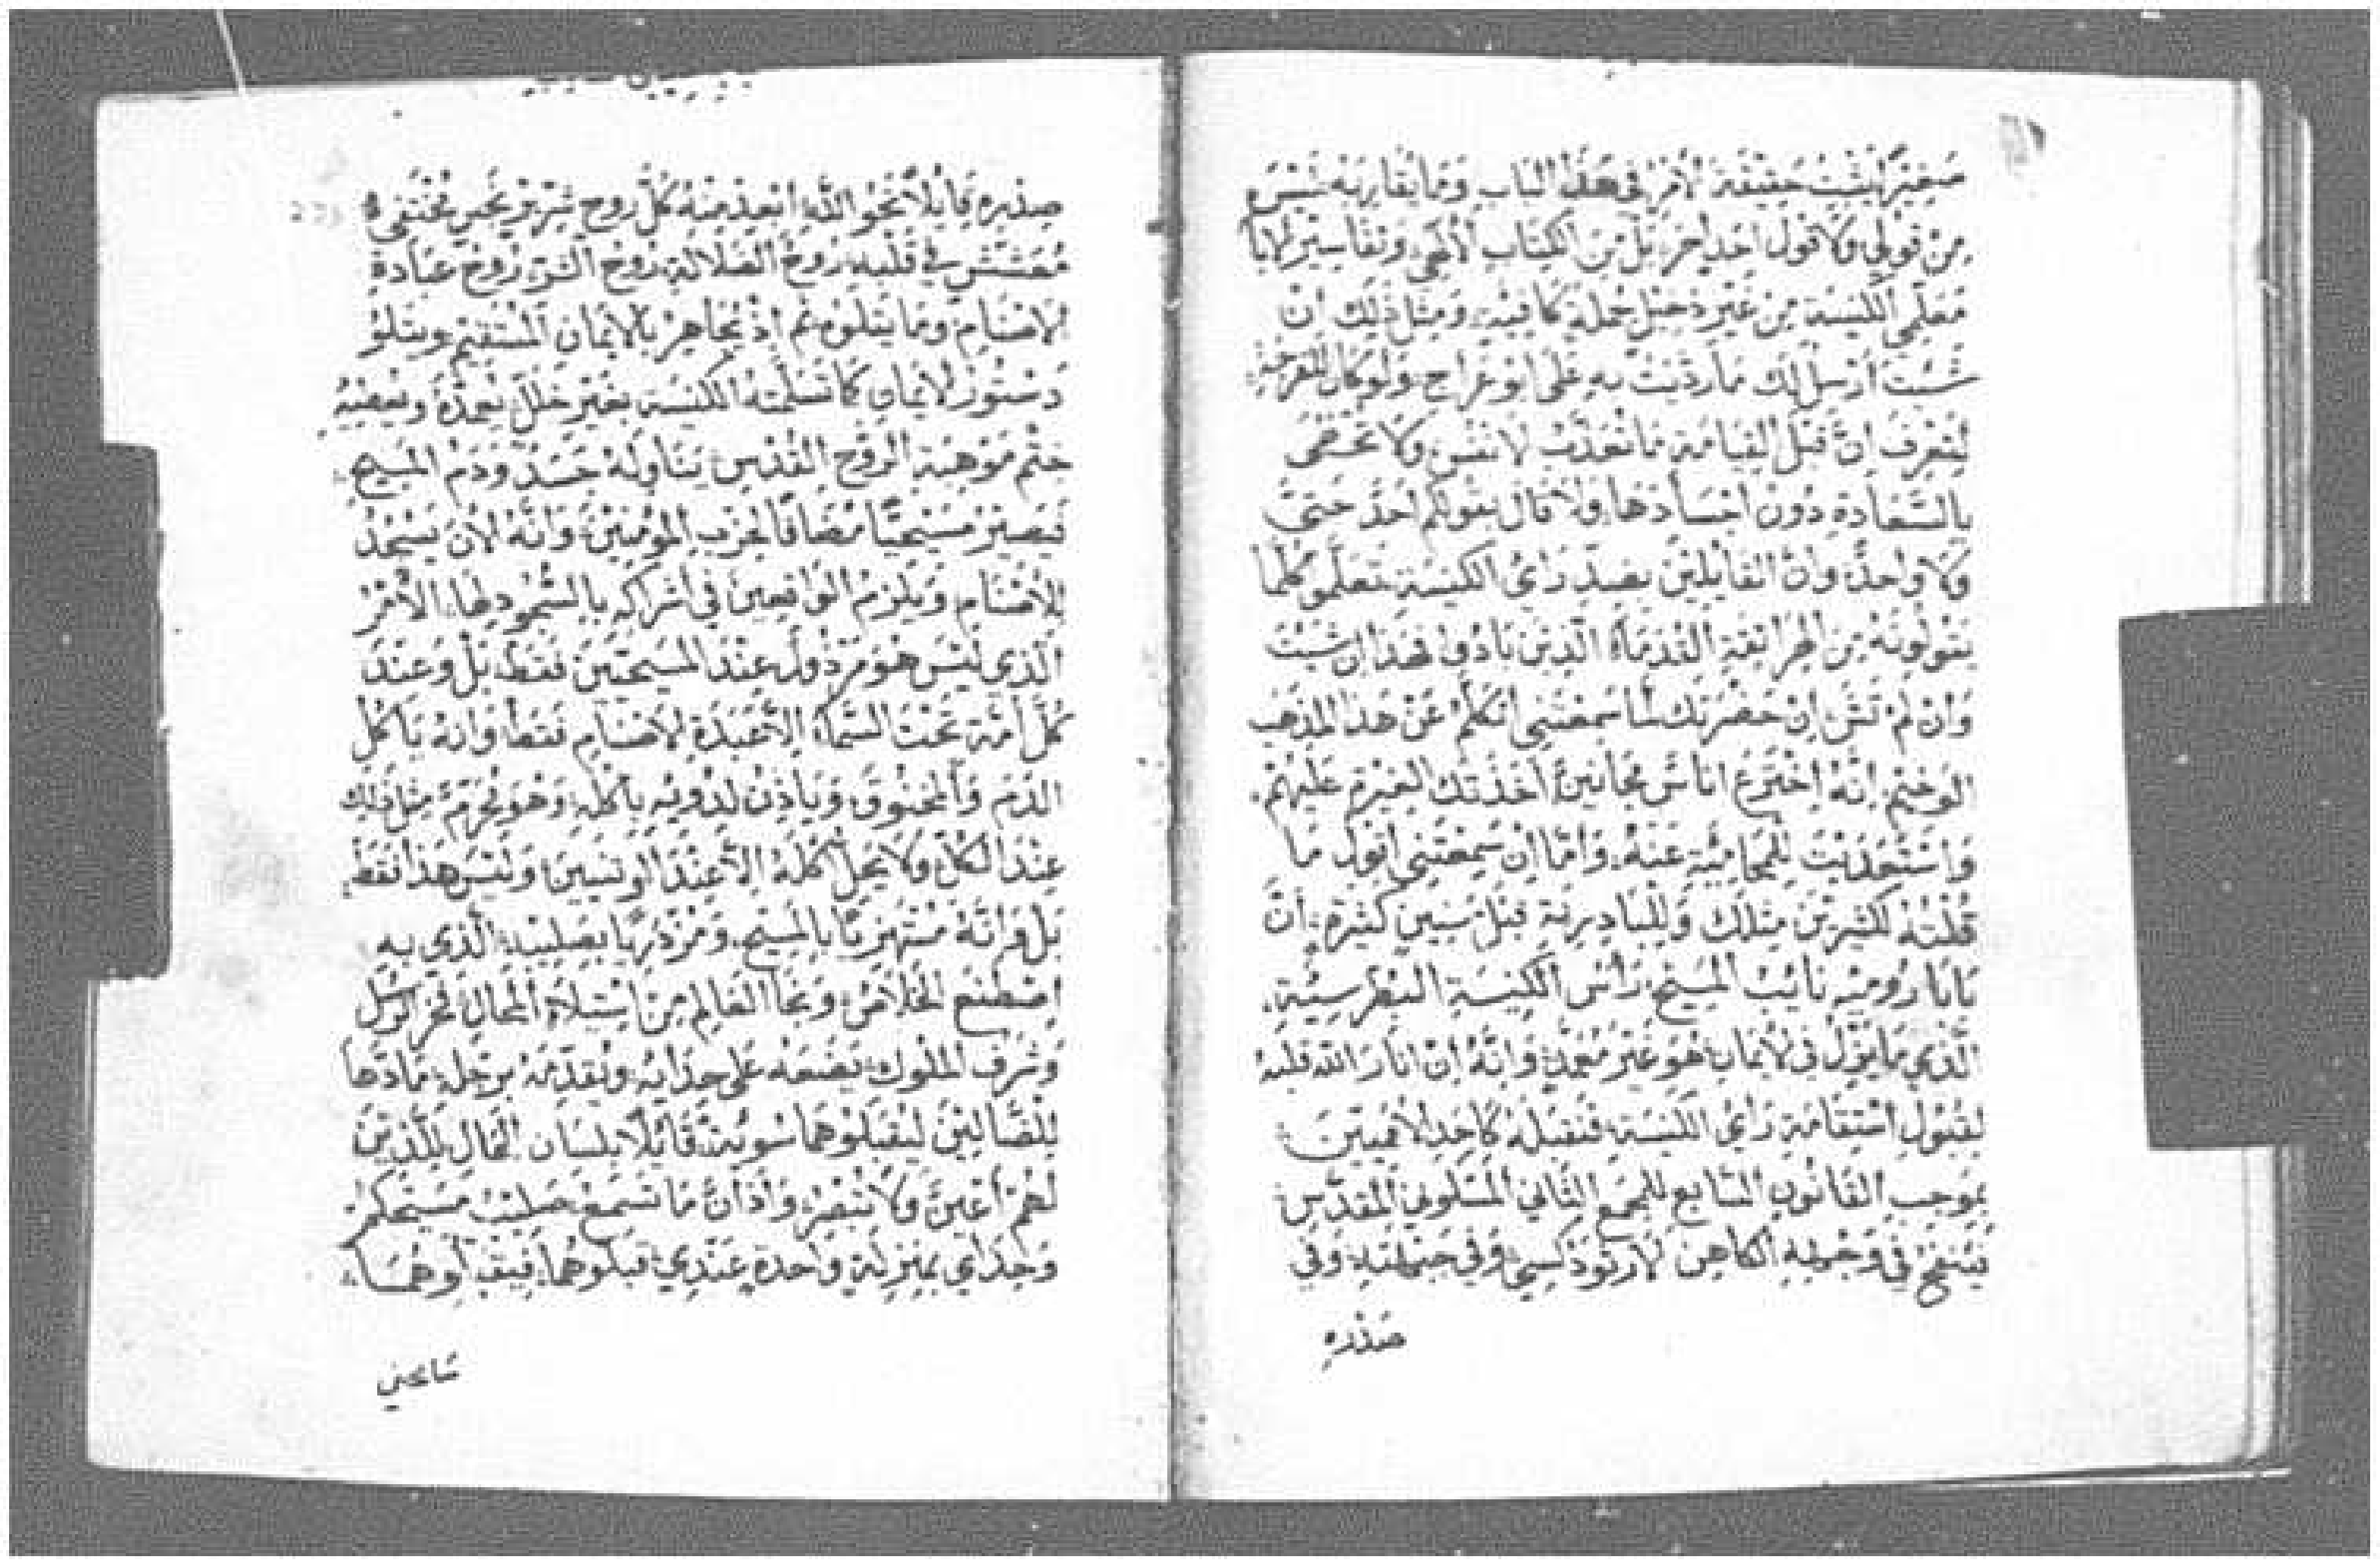 صَغِيرًا يُثبِتُ حَقِيقَةَ الأمْرُ فِي هَذَا البَابِ وَمَا يُقَارِبَهُ لَيْسَ
مِنْ قَوْلِي وَلَا قَوْلِ اَحَدٍ اخَر، بَلْ مِنَ الكِتَابِ الْالَهِي وَتَفَاسِيْر الابَا
مُعَلِّمِي الكَنِيْسَةِ مِنْ غَيْرِ دَخِيْل جُمْلَة كَافِيَة، وَمِثْلِ ذَلِكَ اِنْ
شِئتَ اُرْسِل لَكَ مَا رَدَّيْتَ بِهِ عَلَى ابُو عَرَاج، وَلَو كَانَ
لِتَعْرِفَ اِنَّ قَبْلَ القِيَامَةِ مَا تَعَذَّبُ الانْفُس، وَلَا تَحْظَى
بِالسَّعَادَةِ دُوْنَ اجْسَادَهَا، وَلَا قَالَ بِقَولِكُم اَحَدٌ حَتَّى
وَلَا وَاحِدٌ، وَانَّ القَايِلِيْنَ بِضِدِّ رَايِ الكَنِيْسَةِ تَعَلَّمُو كُلَّمَا
يَقُولُونَهُ مِنَ الهَرَاتِقَةِ القُدَمَاءِ الَّذِيْنَ بَادُوا فَهَذَا اِن شِئْتَ
وَانْ لَمْ تَشَ، اِنْ حَضْرَتك لَمَّا سَمِعْتَنِي اتَكَلَّمْ عَنْ هَذَا المَذْهَب
الوَخِيْم، اِنَّهُ اِخْتِرَعْ انَاسٌ مَجَانِيْنَ، اَخَذَتكَ الغِيْرَة عَلَيْهِمْ.
وَاسْتَعَدَّيْتَ لِلْمُحَامِيَّة عَنهُ، وَامَّا اِنْ سَمِعْتَنِي اَقُولُ مَا
قُلْتُهُ لِكَثِيرِيْنَ مِثْلَكَ وَلِلْبَادِرِيَّة قَبْلَ سِنِيْن كَثِيْرَة، اَنَّ
بَابَا رُومِيَه نَايِبُ المَسِيْح، رَأسَ الكَنِيْسَة البُطْرُسِيَّة،
الَّذِي مَا يَزِلُّ فِي الْايْمَانِ، هُوَ غَيْرُ مُعَمَّد، وَانَّهُ اِنْ انَارَ اللّه قَلْبَهُ
لِقَبُولِ اسْتِقَامَةِ رَايُ الكَنِيْسَة، فَنَقْبَلُهُ كَاَحَدِ الْامَمِيّيْن
بِمَوجِبِ القَانُونِ السَّابِعِ لِلْمَجْمَعِ الثَّانِي المَسْكُونِي المُقَدَّس
فَيَنْفُخُ فِي وَجْهِهِ الكَاهِن الْارْثُوذُكْسِي، وَفِي جَبْهَتِهِ وَفِي
صَدْرِهِ
صِدْرِهِ قَايْلًا نَحْوَ اللَّهِ، ابْعِدْ مِنْهُ كُلَّ رُوح شِرِّيْر نَجِسٍ مُخْتَفِي
مُعَشِّشٍ فِي قَلْبِهِ، رُوْحَ الضَّلَالَةِ، رُوْحَ الشَّرِّ، رُوْحَ عِبَادَةِ
الاصْنَامِ وَمَا يَتْلُوْهُ ثُمَّ اِذْ يُجَاهِرْ بِالْايْمَانِ المُسْتَقِيْم وَيَتْلُوْ
دَسْتُوْرَ الْايْمَانِ كَمَا تَسَلَّمَتْهُ الكَنِيْسَة بِغَيْرِ خَلَلٍ يُعَمِّدْهُ وَيُعْطِيْهِ
خَتْم مَوْهِبَة الرُّوْحِ القُدْسِ، يُنَاوِلَهُ جَسَدَ وَدَمَ المَسِيح
فَيَصِيْرُ مَسِيْحِيًّا مُضَافًا لِحِزْبِ المُوْمِنِيْنَ، وَانَّهُ الْانَ يَسْجُدُ
لِلاصْنَامِ وَيُلْزِمُ الوَاقِعِيْنَ فِي اشْرَاكِهِ بِالسُّجُوْدِ لِهَا، الْامْرُ
الَّذِي لَيْسَ هُوَ مَرْذُولٌ عِنْدَ المَسِيْحِيّيْنَ فَقَطْ، بَلْ وَعِنْدَ
كُلِّ اُمَّة تَحْتَ السَّمَاء اِلَّا عَبَدَةِ الاصْنَامِ فَقَطْ، وَانَّهُ يَاكُلُ
الدَّمَ وَالْمَخْنُوْق، وَيَاذِنُ لِذَوِيْهِ بِاَكْلِهِ، وَهُوَ مُحَرَّمٌ مِثْلَ ذَلِكَ
عِنْدَ الكُلِّ وَلَا يَحِلُّ اَكْلَهُ اِلَّا عِنْدَ الوَثَنِيّيْنَ، وَلَيْسَ هَذَا فَقَطْ
بَلْ وَانَّهُ مُسْتَهْزِيًا بِالمَسِيْحِ، وَمُزْدَرِيًا بِصَلِيْبِهِ، الَّذِي بِهِ
اصْطَنَعَ الخَلَاص، وَنَجَا العَالم مِنْ اِسْتِيْلَاءِ المُحَالِ، فَخْرَ الرُّسُل
وَشَرَفَ المُلُوْك، يَضَعَهُ عَلَى حِذَايِهِ وَيُقَدِّمَهُ بِرِجْلِهِ مَادّهَا
لِلضَّالِيْنَ لِيُقَبِّلُوهَمَا سَوِيَّة، قَايْلًا بِلِسَانِ الحَالِ لِلَّذِيْنَ
لَهُمْ اَعْيُنٌ وَلَا تُبْصِرْ، وَاَذَانٌ مَا تَسْمَعْ، صَلِيْبُ مَسِيْحَكُم
وَحِذَاي بِمَنْزِلَةٍ وَاحِدَةٍ عِنْدِي، قَبِّلُوهُمَا،